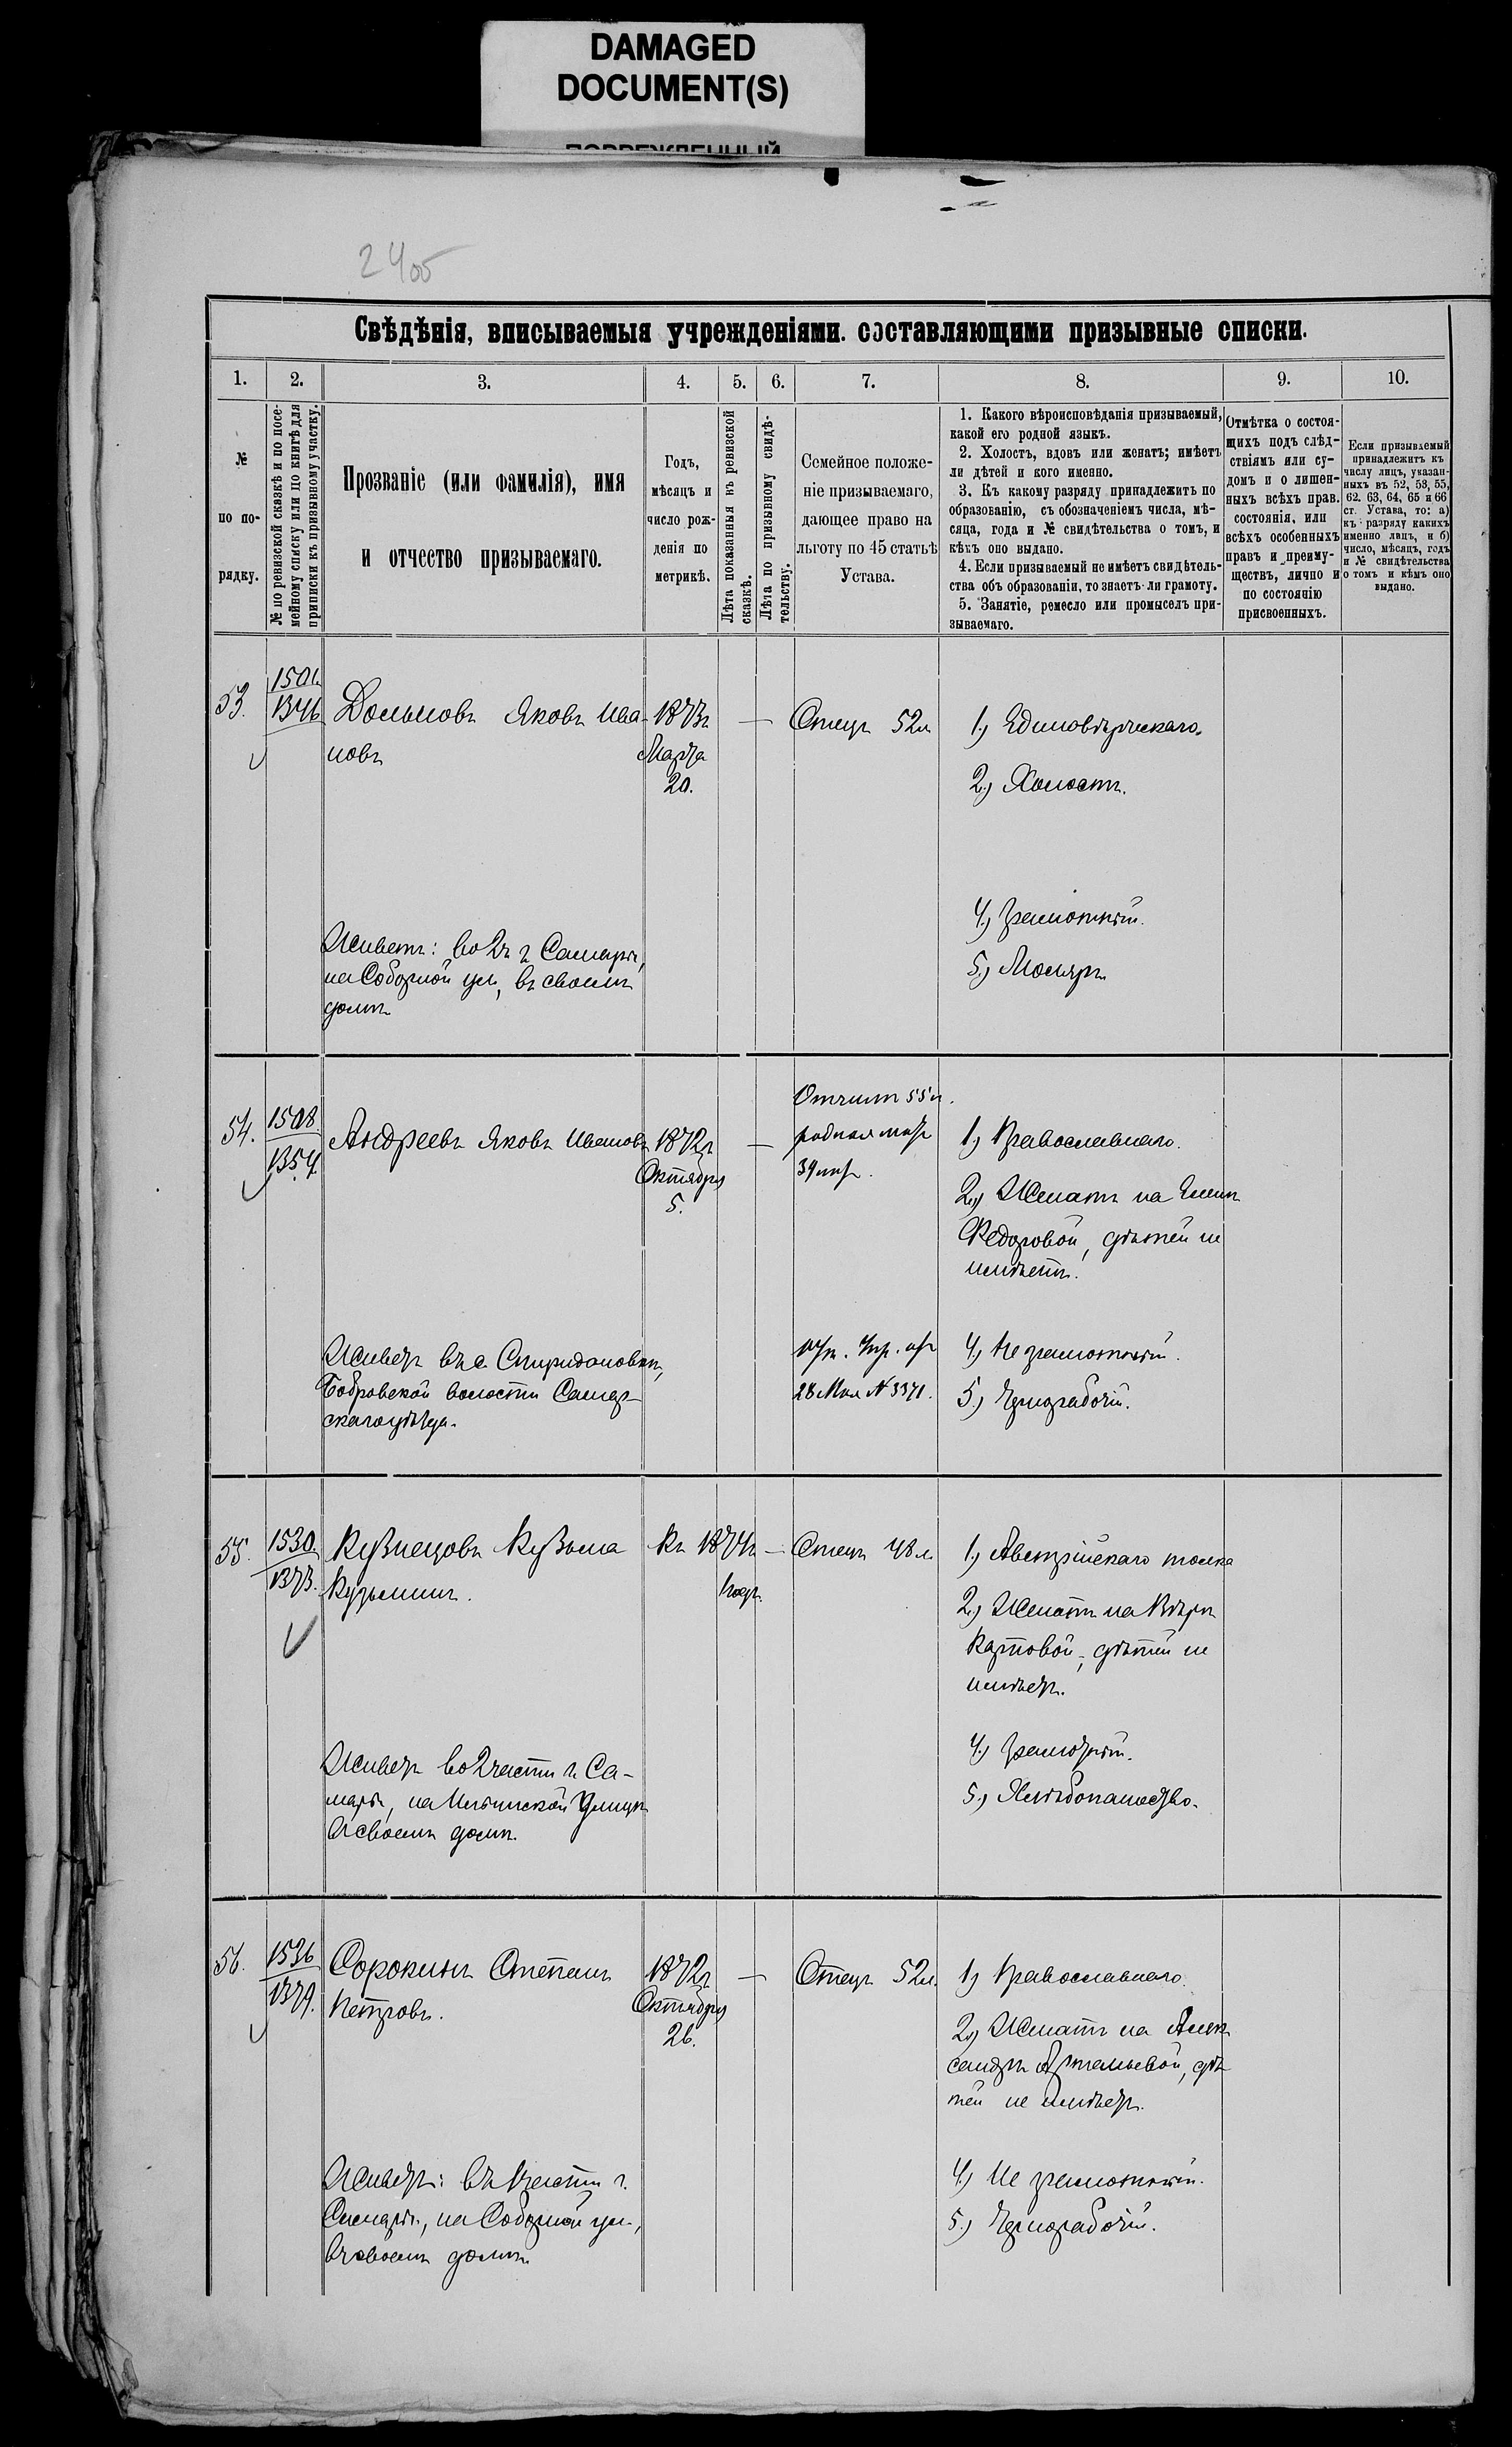 DAMAGED
DOCUMENT(S)
ПОВРЕЖДЕННЫЙ
2400
Свѣдѣнія, вписываемыя учрежденіями. составляющими призывные списки.
1. 2. 3. 4. 5. 6. 7. 8. 9. 10.
№
по по-
рядку.
№ по ревизской сказкѣ и по посе-
мейному списку или по книгѣ для
приписки къ призывному участку.
Прозваніе (или фамилія), имя
и отчество призываемаго.
Годъ,
мѣсяцъ и
число рож-
денія по
метрикѣ.
Лѣта показанныя въ ревизской
сказкѣ.
Лѣта по призывному свидѣ-
тельству.
Семейное положе-
ніе призываемаго,
дающее право на
льготу по 45 статьѣ
Устава.
1. Какого вѣроисповѣданія призываемый,
какой его родной языкъ.
2. Холостъ, вдовъ или женатъ; имѣетъ
ли дѣтей и кого именно.
3. Къ какому разряду принадлежитъ по
образованію, съ обозначеніемъ числа, мѣ-
сяца, года и № свидѣтельства о томъ, и
кѣмъ оно выдано.
4. Если призываемый не имѣетъ свидѣтель-
ства объ образованіи, то знаетъ-ли грамоту.
5. Занятіе, ремесло или промыселъ при-
зываемаго.
Отмѣтка о состоя-
щихъ подъ слѣд-
ствіямъ или су-
домъ и о лишен-
ныхъ всѣхъ прав.
состоянія, или
всѣхъ особенныхъ
правъ и преиму-
ществъ, лично и
по состоянію
присвоенныхъ.
Если призываемый
принадлежитъ къ
числу лицъ, указан-
ныхъ въ 52, 53, 55,
62. 63, 64, 65 и 66
ст. Устава, то: а)
къ разряду какихъ
именно лицъ, и б)
число, мѣсяцъ, годъ
и № свидѣтельства
о томъ и кѣмъ оно
выдано.
53.
1346
Яковъ Ива-
новъ
1873г
Марта
20.
—
Отецъ 52л
1.) Единовѣрческаго.
2.) Холостъ.
4.) Грамотный.
5.) Маляръ.
Живетъ: во 2ч г Самары,
на Соборной ул, въ своемъ
домѣ
54.
1508.
1354
Андреевъ Яковъ Ивановъ
1872г
Октября
5.
—
Отчимъ 55л.
родная мать
39 лѣтъ.
1.) Православнаго.
2.) Женатъ на Еленѣ
Федоровой, дѣтей не
имѣетъ.
28 Мая № 3371.
4.) Не грамотный.
5.) Чернорабочій.
Живетъ въ с. Спиридоновкѣ,
Бобровской волости Самар-
скаго уѣзда.
55.
1530.
1373.
Кузнецовъ Кузьма
Кузьминъ.
Къ 1874г
году.
—
Отецъ 48л.
1.) Австрійскаго толка
2.) Женатъ на Вѣрѣ
Карповой, дѣтей не
имѣетъ.
4.) Грамотный.
5.) Хлѣбопашество.
Живетъ во 2 части г. Са-
мары, на Ильинской улицѣ
въ своемъ домѣ.
56.
1536
1379.
Сорокинъ Степанъ
Петровъ.
1872г
Октября
26.
—
Отецъ 52л.
1.) Православнаго.
2.) Женатъ на Алек
сандрѣ Артемьевой, дѣ
тей не имѣетъ.
4.) Не грамотный.
5.) Чернорабочій.
Живетъ: въ 1 части г.
Самары, на Соборной ул,
въ своемъ домѣ.